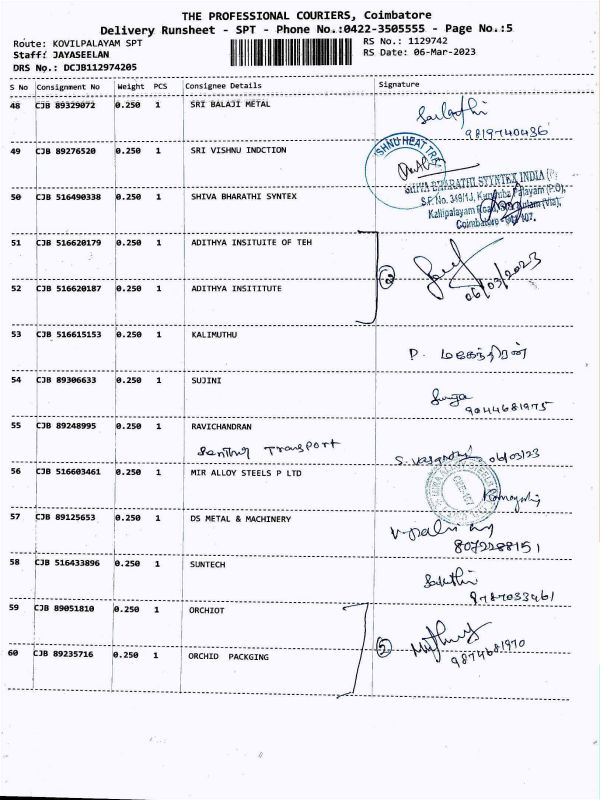 THE PROFESSIONAL COURIERS, Coimbatore
Delivery Runsheet - SPT - Phone No.:0422-3505555 - Page No.:5
Route: KOVILPALAYAM SPT
RS No.: 1129742
Staff: JAYASEELAN
RS Date: 06-Mar-2023
DRS No.: DCJB112974205
S No Consignment No Weight PCS Consignee Details Signature
48 CJB 89329072 0.250 1 SRI BALAJI METAL
9819740436
49 CJB 89276520 0.250 1 SRI VISHNU INDCTION
ISHNU HEAT TRE
50 CJB 516490338 0.250 1 SHIVA BHARATHI SYNTEX
SHIVA BHARATHI SYNTEX INDIA (P)
S.F. No. 349/1J, Palayam (P.O),
Kallipalayam Road, (Via),
Coimbatore 107.
51 CJB 516620179 0.250 1 ADITHYA INSITUITE OF TEH
2
06/03/2023
52 CJB 516620187 0.250 1 ADITHYA INSITITUTE
53 CJB 516615153 0.250 1 KALIMUTHU
P. மகேந்திரன்
54 CJB 89306633 0.250 1 SUJINI
9044681975
55 CJB 89248995 0.250 1 RAVICHANDRAN
Transport
06/03/23
56 CJB 516603461 0.250 1 MIR ALLOY STEELS P LTD
57 CJB 89125653 0.250 1 DS METAL & MACHINERY
8072288151
58 CJB 516433896 0.250 1 SUNTECH
Sakthi
9787033461
59 CJB 89051810 0.250 1 ORCHIOT
2
9874681970
60 CJB 89235716 0.250 1 ORCHID PACKGING